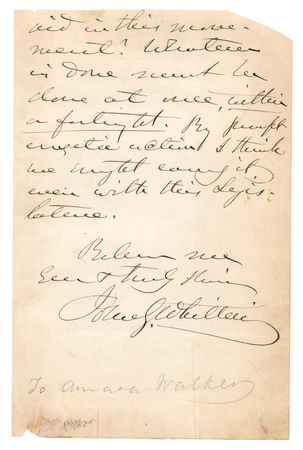 aid in this move-
ment? Whatever
is done must be
done at once, within
a fortnight. By prompt
energetic action I think
we might carry it
even with this Legis-
lature.
Believe me
Ever & truly thine
John G. Whittier
To Amasa Walker